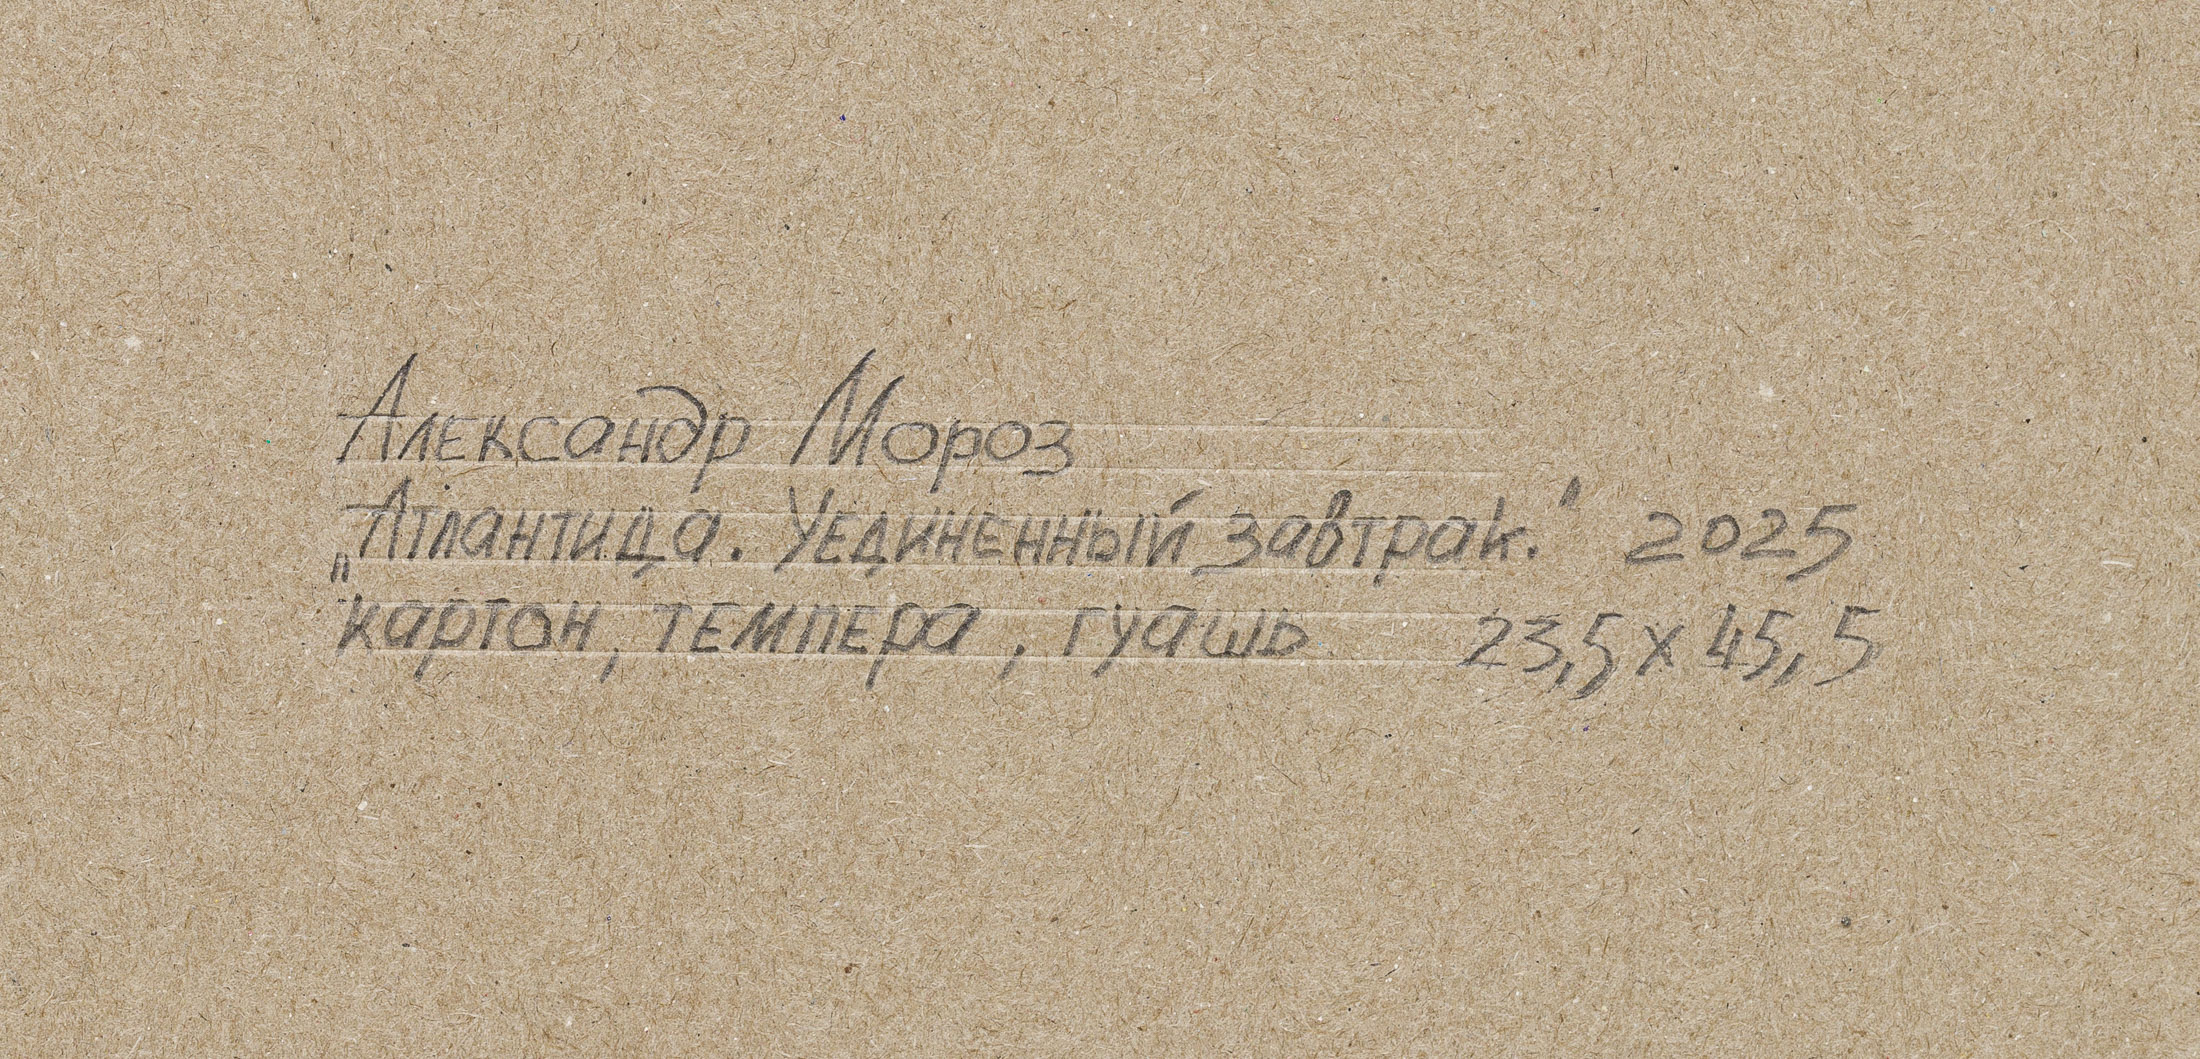 Александр Мороз
„Атлантида. Уединенный завтрак." 2025
картон, темпера, гуашь 23,5 x 45,5